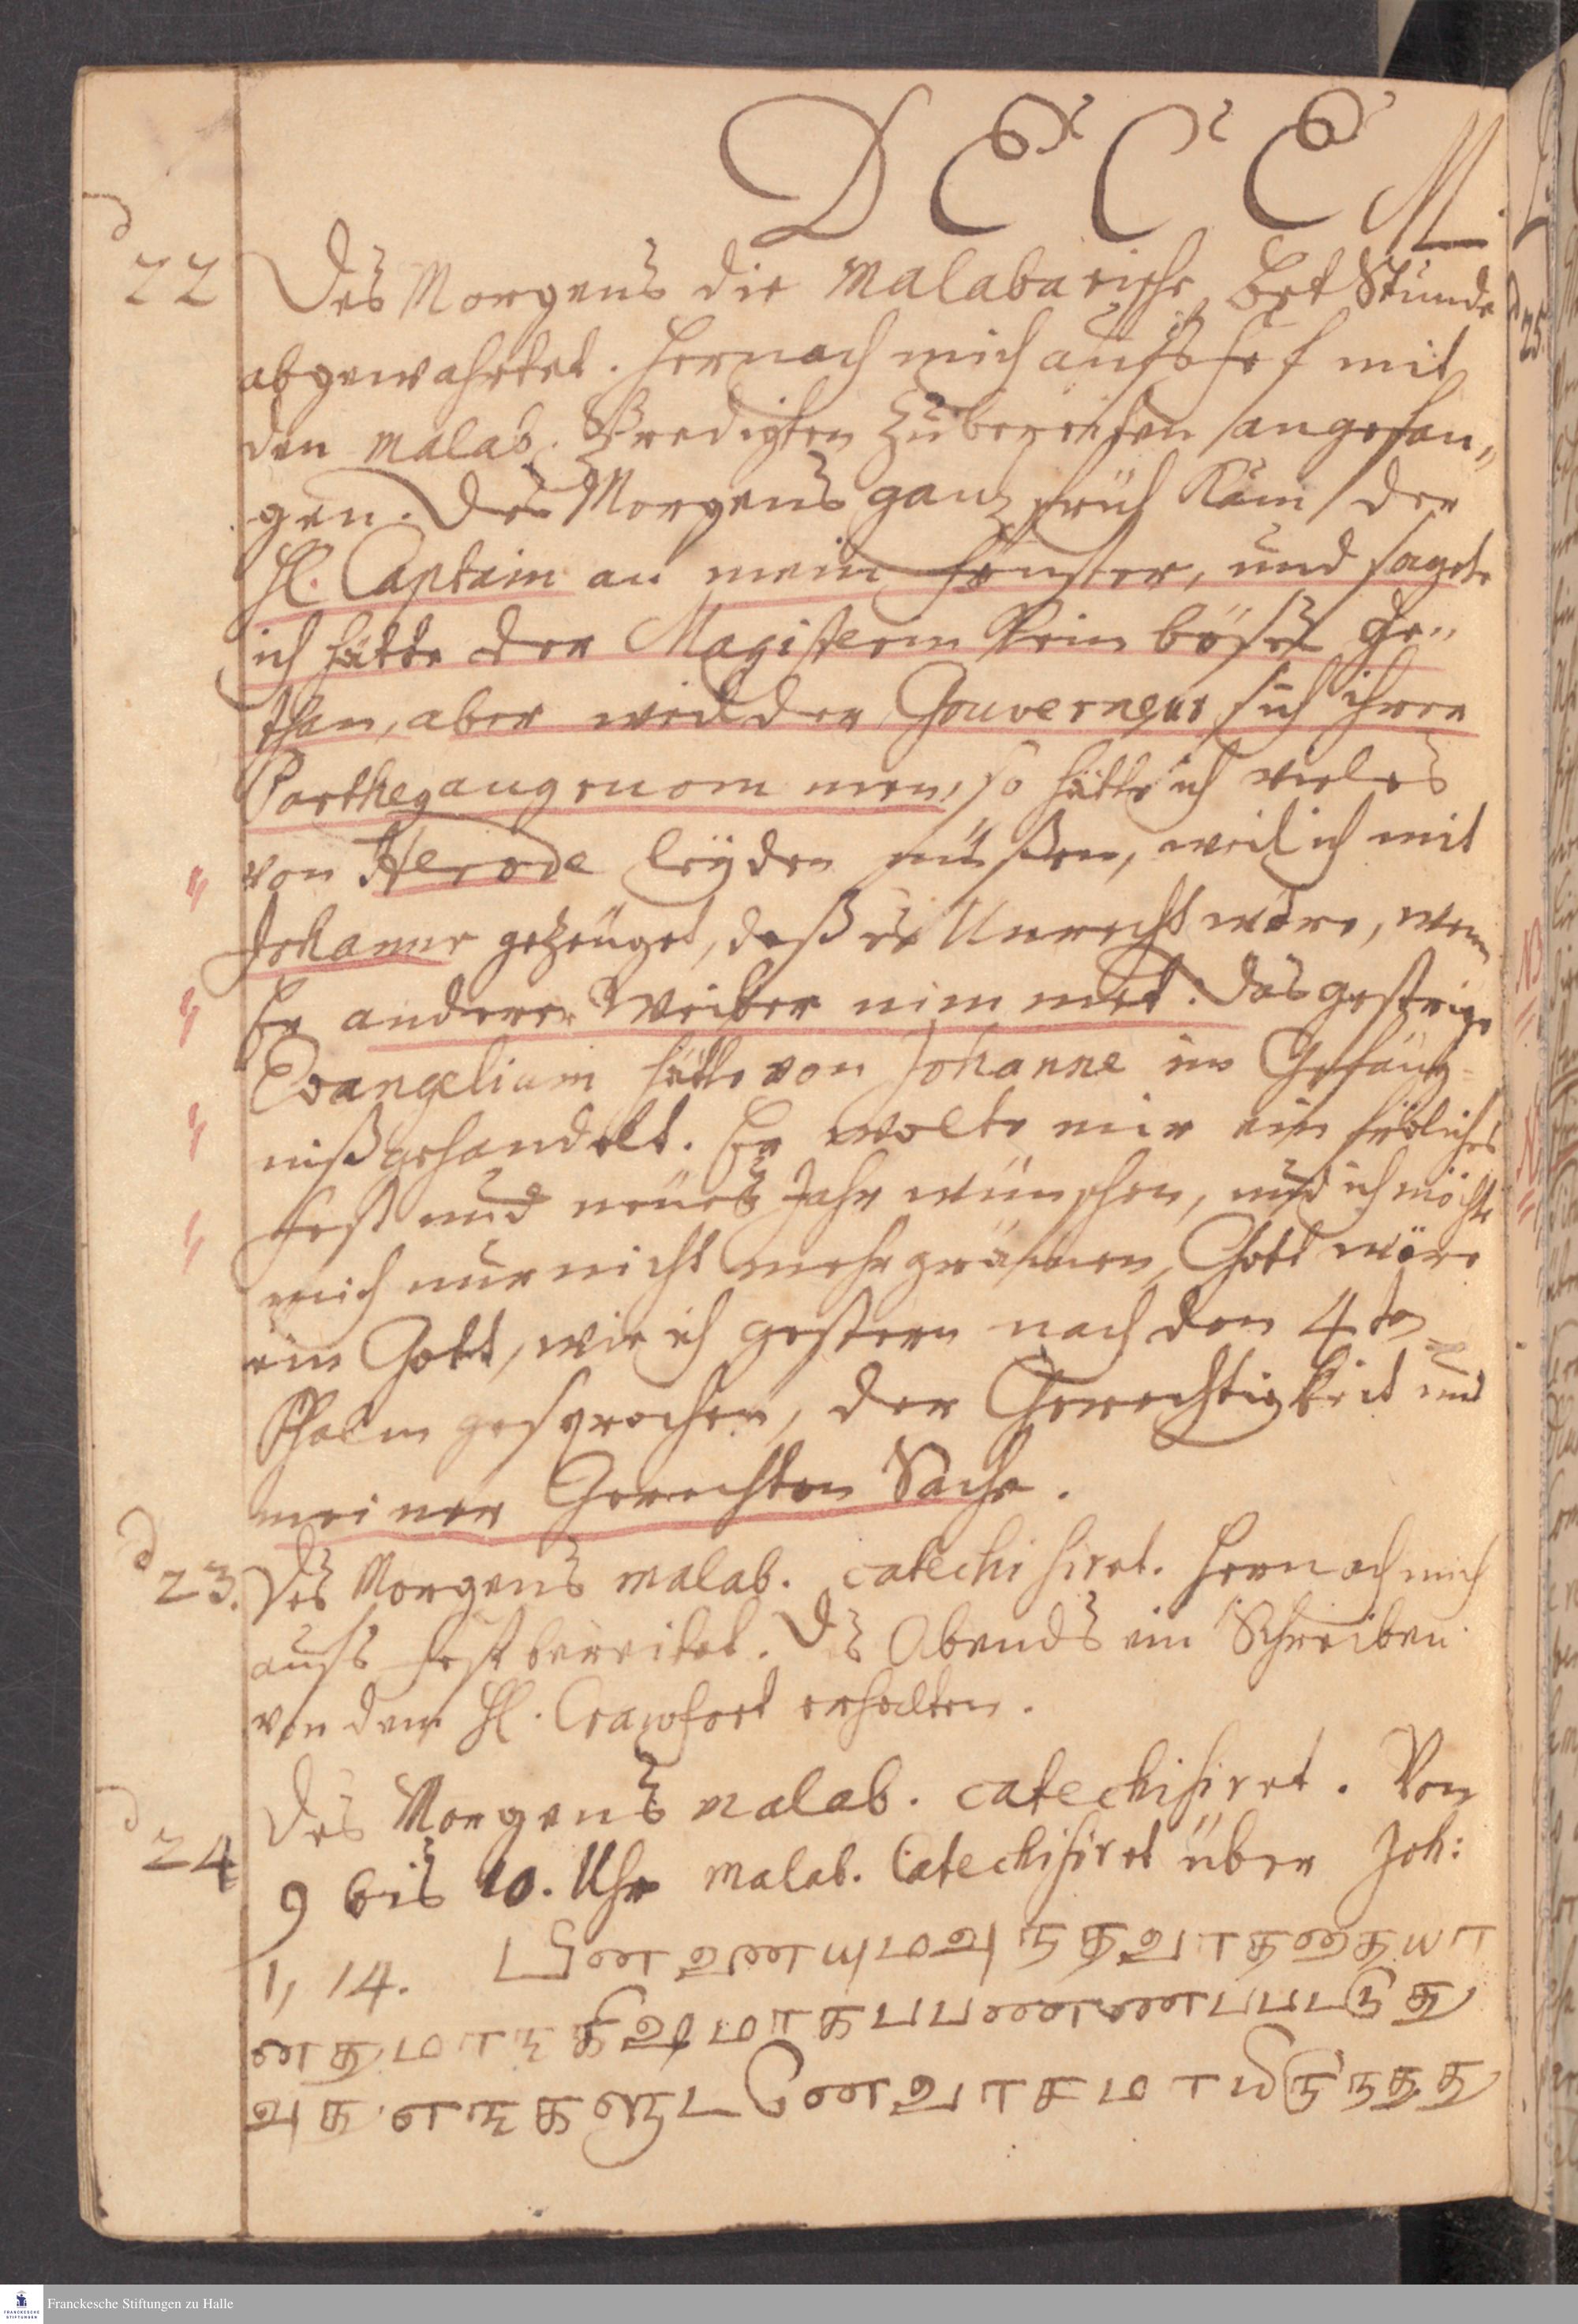 DECEM.
d 22 Des Morgens die Malabarische Bet Stunde
abgewahrtet. Hernach mich aufs Fest mit
den malab. Predigten Zubereiten angefan„
gen. Des Morgens ganz früh Kam der
H. Captain an mein Fenster, und sagte
ich hätte der Magisterin Kein böses ge„
than, aber weil der Gouverneur sich ihrer
Parthey angenommen, so hätte ich vieles
von Herode leyden müßen, weil ich mit
Johanne gezeuget, daß es Unrecht wäre, wenn
Er anderer Weiber nimmet. Das gestrige
Evangelium hätte von Johanne im Gefäng=
niß gehandelt. Er wolte mir ein fröliches
Fest und neues Jahr wünschen, und ich möchte
mich nur nicht mehr grämen, Gott wäre
ein Gott, wie ich gestern nach den 4ten
Psalm gesprochen, der Gerechtigkeit und
meiner Gerechten Sache.
d 23. Des Morgens malab. catechisiret. Hernach mich
aufs Fest bereitet. Des Abends ein Schreiben
von dem H. Crawfort erhalten.
d 24 Des Morgens malab. catechisiret. Von
9 bis 10. Uhr malab. Catechisiret über Joh:
1, 14.